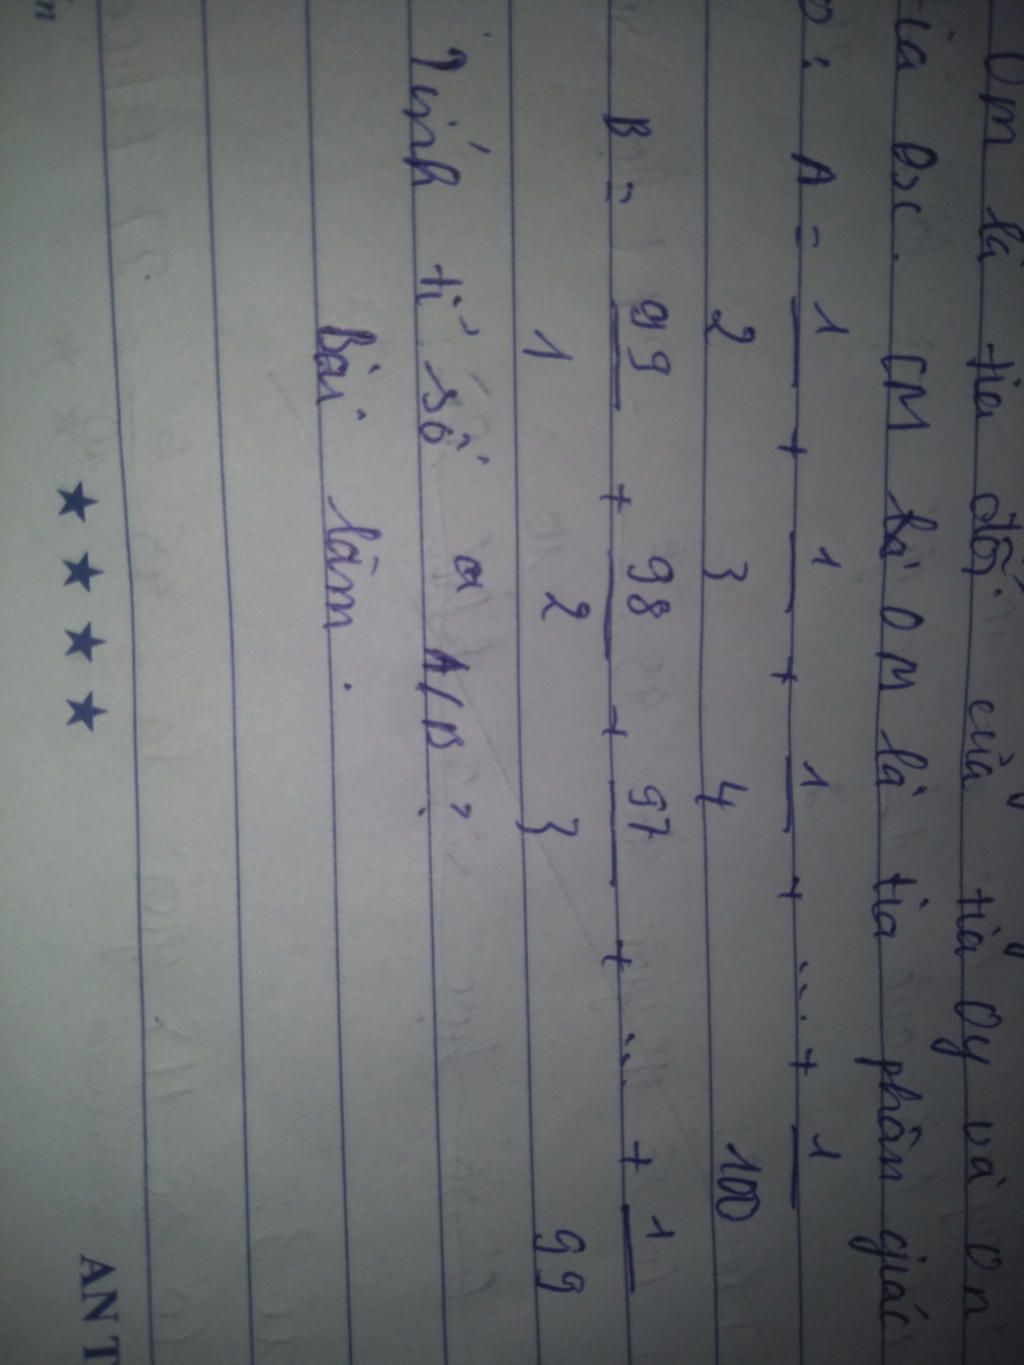 Om là tia đối của tia Oy và On
tia Ox. CM hai OM là tia phân giác
A = 1/2 + 1/3 + 1/4 + ... + 1/100
B = 99/1 + 98/2 + 97/3 + ... + 1/99
Tính tỉ số a A/B?
Bài làm.
★ ★ ★ ★
AN T